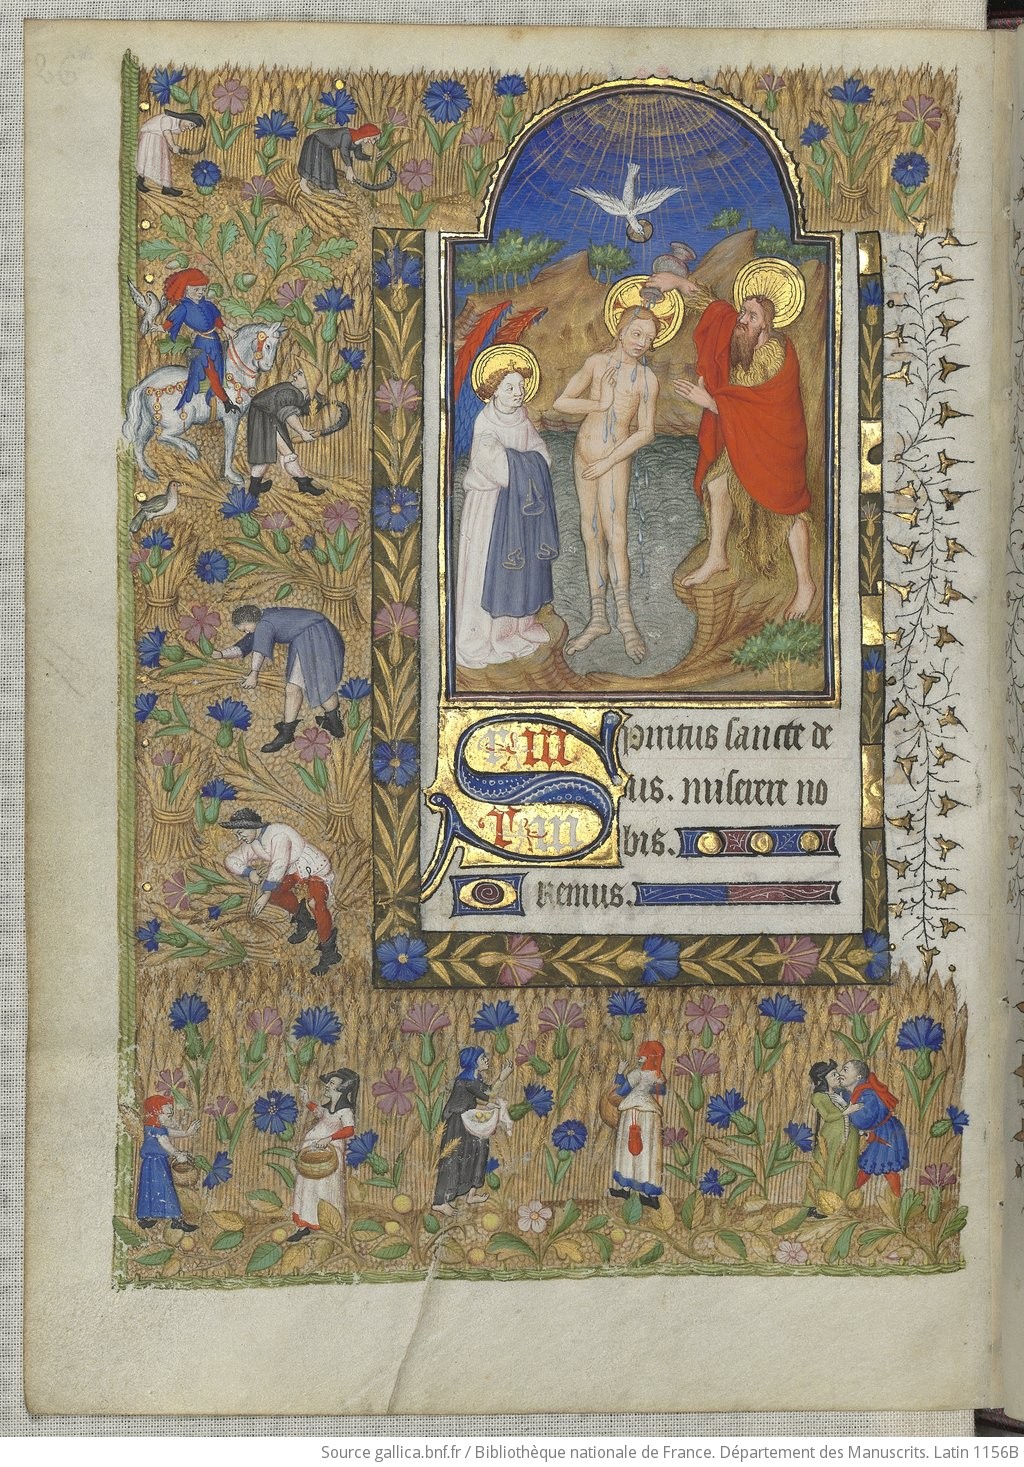 Spiritus sancte de
us. miserere no
bis.
Oremus.
Source gallica.bnf.fr / Bibliothèque nationale de France. Département des Manuscrits. Latin 1156B